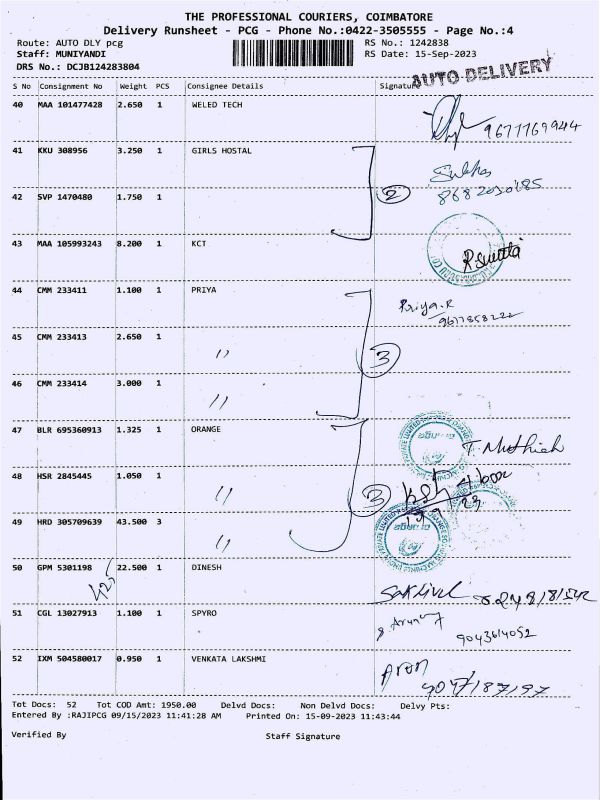 THE PROFESSIONAL COURIERS, COIMBATORE
Delivery Runsheet - PCG - Phone No.:0422-3505555 - Page No.:4
Route: AUTO DLY pcg RS No.: 1242838
Staff: MUNIYANDI RS Date: 15-Sep-2023
DRS No.: DCJB124283804 AUTO DELIVERY
S No Consignment No Weight PCS Consignee Details Signature
40 MAA 101477428 2.650 1 WELED TECH
9677769944
41 KKU 308956 3.250 1 GIRLS HOSTAL
42 SVP 1470480 1.750 1 2
43 MAA 105993243 8.200 1 KCT
44 CMM 233411 1.100 1 PRIYA Priya.R
45 CMM 233413 2.650 1 " 3
46 CMM 233414 3.000 1 "
47 BLR 695360913 1.325 1 ORANGE
48 HSR 2845445 1.050 1 "
3
49 HRD 305709639 43.500 3 "
50 GPM 5301198 22.500 1 DINESH
51 CGL 13027913 1.100 1 SPYRO
9043614052
52 IXM 504580017 0.950 1 VENKATA LAKSHMI
Tot Docs: 52 Tot COD Amt: 1950.00 Delvd Docs: Non Delvd Docs: Delvy Pts:
Entered By :RAJIPCG 09/15/2023 11:41:28 AM Printed On: 15-09-2023 11:43:44
Verified By Staff Signature